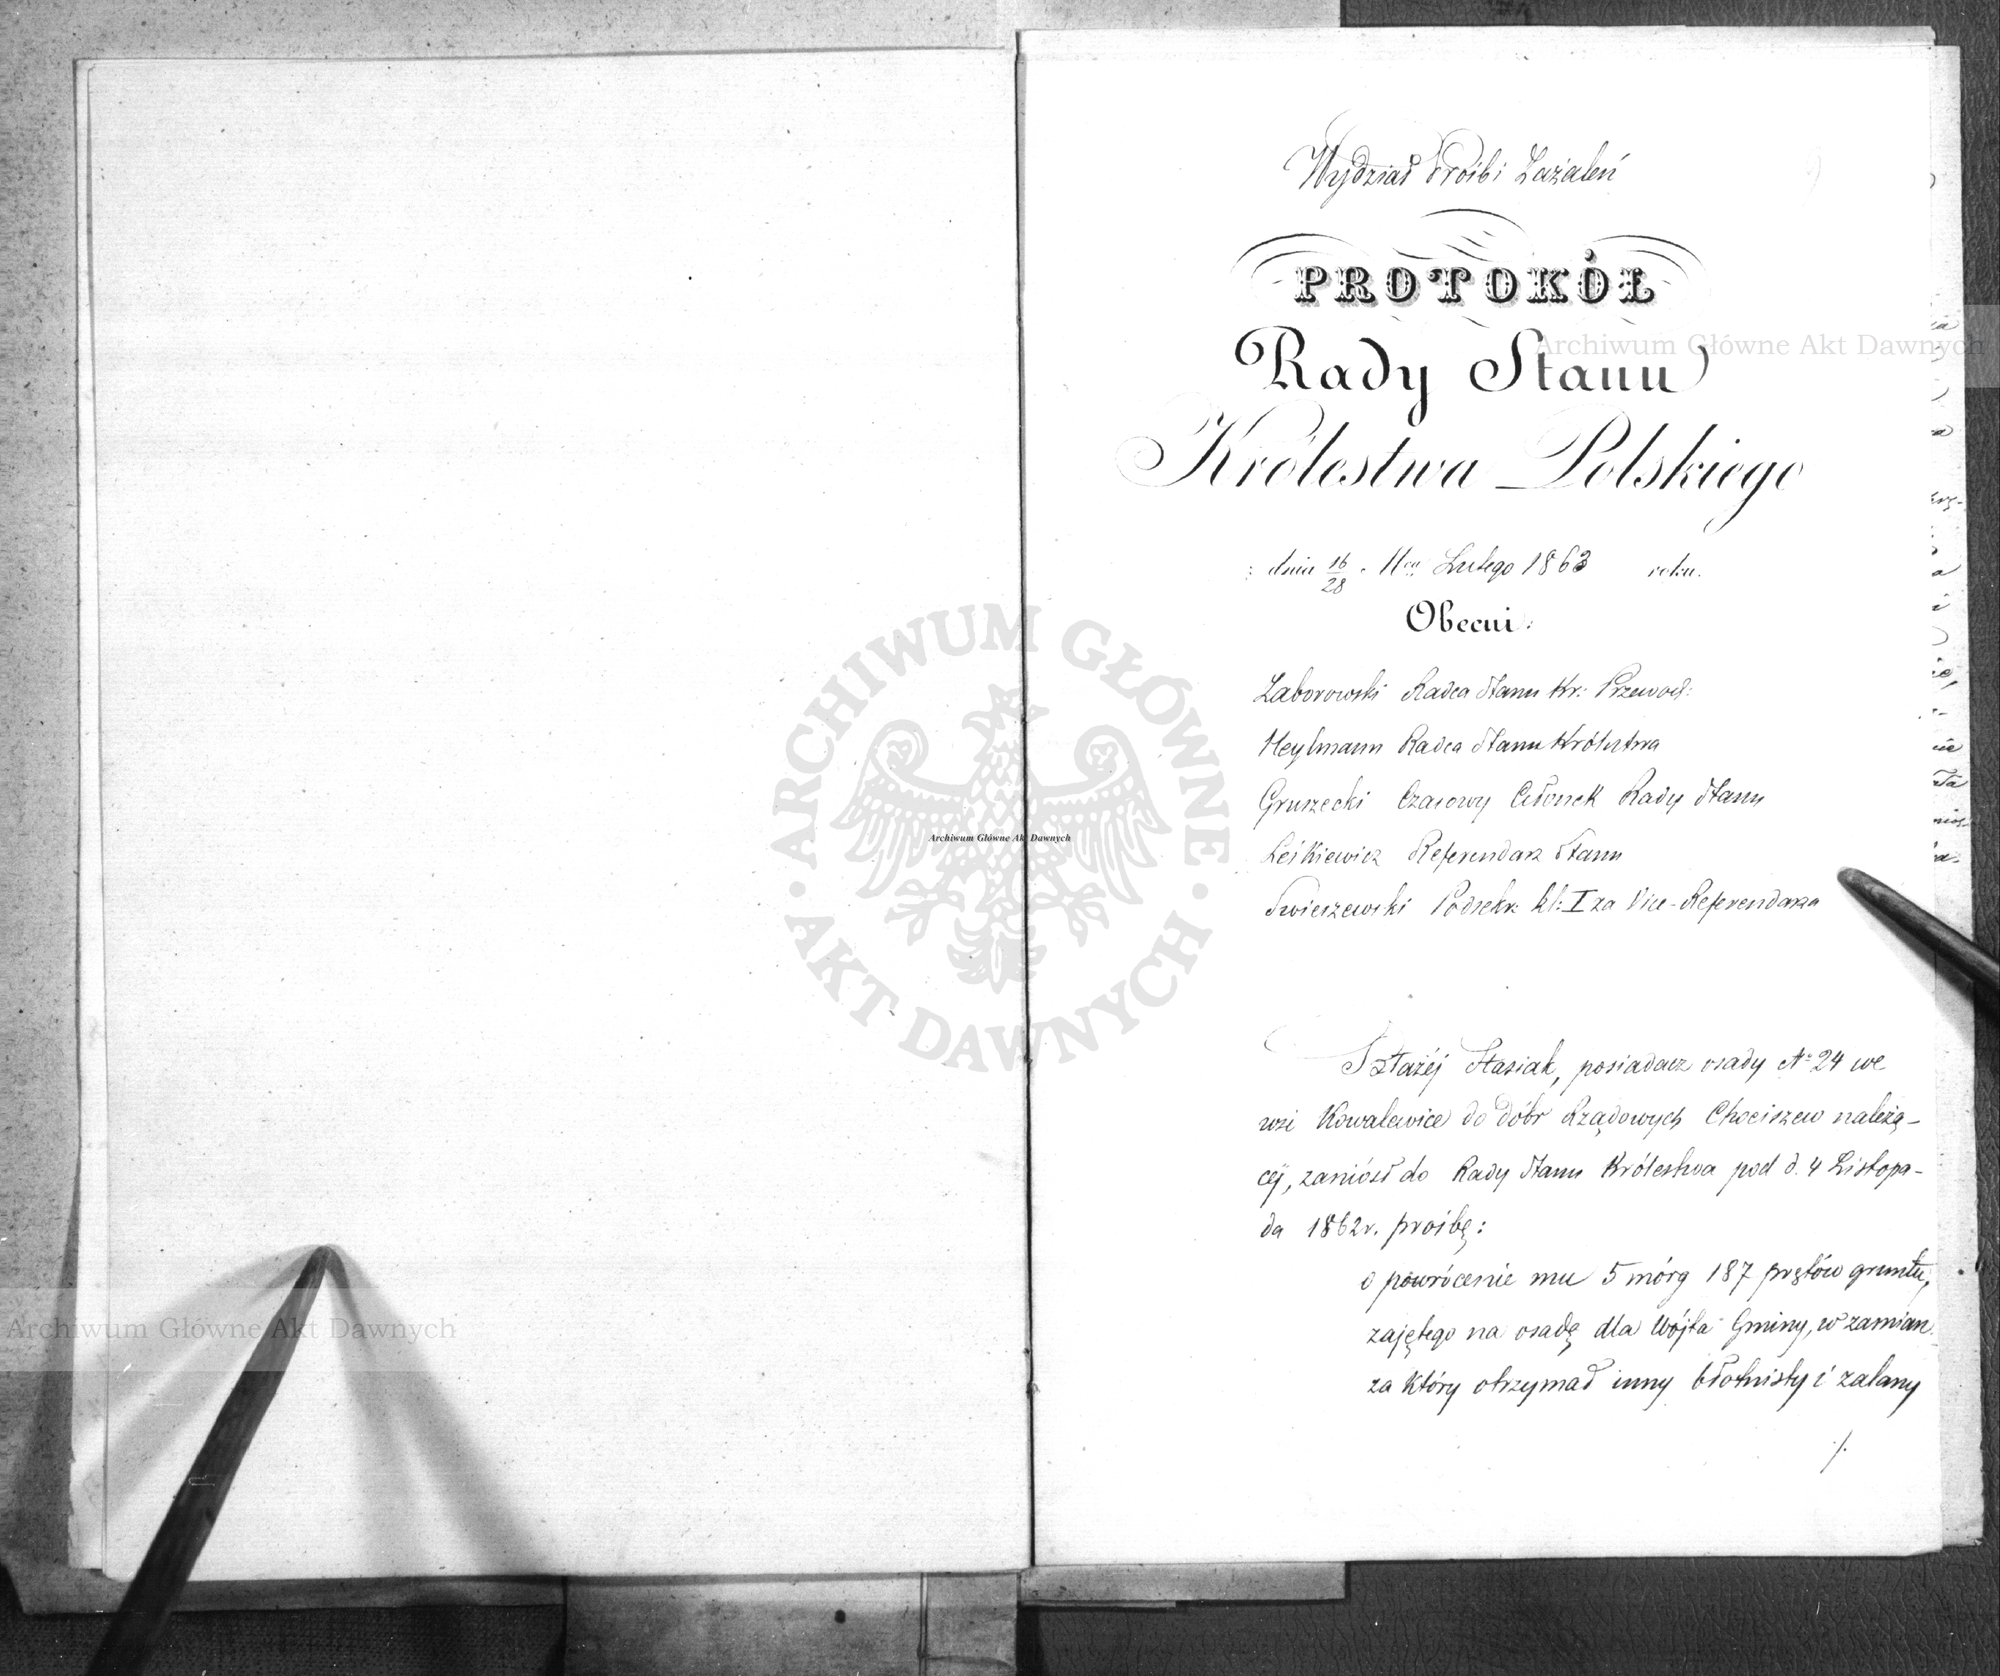 Wydział Próśb i Zażaleń
PROTOKÓŁ
Rady Stanu
Królestwa Polskiego
dnia 16/28 Lutego 1863 roku.
Obecni:
Zaborowski Radca Stanu Kr: Przewod:
Heylmann Radca Stanu Królestwa
Gruszecki Czasowy Członek Rady Stanu
Leśkiewicz Referendarz Stanu
Swieszewski Podsekr: kl: I za Vice-Referendarza
Błażéj Stasiak, posiadacz osady No 24 we
wsi Kowalewice do dóbr Rządowych Chociszew należą-
céj, zaniósł do Rady Stanu Królestwa pod d. 4 Listopa-
da 1862 r. prośbę:
o powrócenie mu 5 mórg 187 prętów gruntu,
zajętego na osadę dla Wójta Gminy, w zamian
za który otrzymał inny błotnisty i zalany
./.
Archiwum Główne Akt Dawnych
ARCHIWUM GŁÓWNE
AKT DAWNYCH
Archiwum Główne Akt Dawnych
Archiwum Główne Akt Dawnych